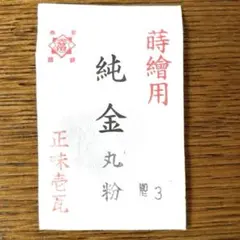 蒔繪用
純金丸粉
3
正味壱瓦